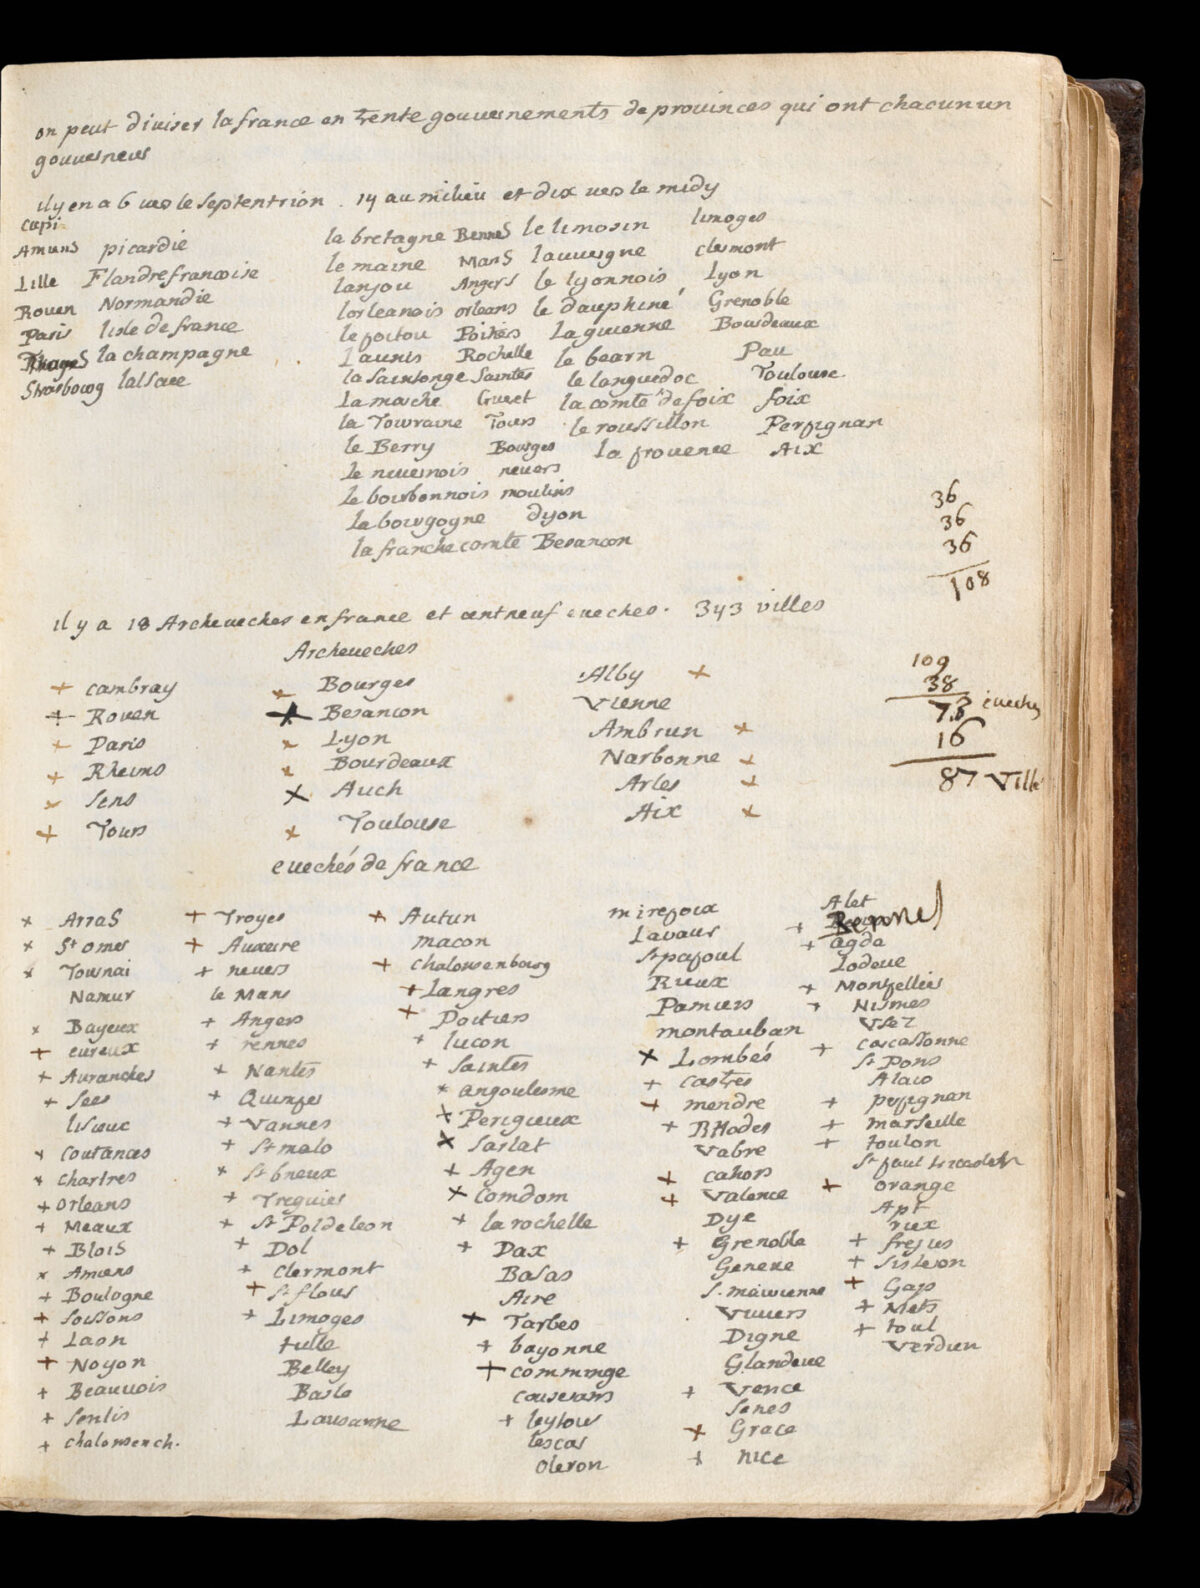 on peut diuiser la france en trente gouuernements de prouinces qui ont chacun un
gouuerneur
il y en a 6 uers le septentrion . 14 au milieu et dix uers le midy
capi
Amiens picardie
Lille Flandre francoise
Rouen Normandie
Paris lisle de france
la champagne
Strasbourg lalsace
la bretagne Rennes
le maine Mans
lanjou Angers
lorleanois orleans
le poitou Poitiers
Launis Rochelle
la saintonge Saintes
La marche Gueret
la Touraine Tours
le Berry Bourges
le niuernois neuers
le bourbonnois moulins
la bourgogne dyon
la franche comté Besancon
le limosin limoges
lauuergne clermont
le lyonnois Lyon
le dauphiné Grenoble
La guienne Bourdeaux
le bearn Pau
le languedoc Toulouse
la comté de foix foix
le roussillon Perpignan
la prouence Aix
36
36
36
108
il y a 18 Archeueches en france et cent neuf eueches . 343 villes
Archeueches
+ cambray
+ Rouen
+ Paris
+ Rheims
+ Sens
+ Tours
+ Bourges
+ Besancon
+ Lyon
+ Bourdeaux
× Auch
+ Toulouse
Alby +
Vienne
Ambrun +
Narbonne +
Arles +
Aix +
109
38
73 eueches
16
87 Ville
euechés de france
× Arras
× St omer
× Tournai
Namur
× Bayeux
+ eureux
+ Auranches
+ Sees
lisieux
× Coutances
× Chartres
+ Orleans
+ Meaux
+ Blois
× Amiens
+ Boulogne
+ Soissons
+ Laon
+ Noyon
+ Beauuois
+ Senlis
+ chalons en ch.
+ Troyes
+ Auxerre
+ neuers
le Mans
+ Angers
+ rennes
+ Nantes
+ Quimper
+ Vannes
+ St malo
× St brieux
+ Treguier
+ St Pol de leon
+ Dol
+ clermont
+ St flour
+ Limoges
tulle
Belley
Basle
Lausanne
+ Autun
macon
+ chalons en bourg
+ Langres
+ Poitiers
+ lucon
+ Saintes
× angoulesme
× Perigueux
× Sarlat
+ Agen
× Comdom
+ la rochelle
+ Dax
Basas
Aire
+ Tarbes
+ bayonne
+ comminge
couserans
+ leytour
lescar
Oleron
mirepoix
Lavaur
St papoul
Rieux
Pamiers
montauban
× Lombés
+ castres
+ mendre
+ RHodes
Vabre
+ cahors
+ Valence
Dye
+ Grenoble
Geneue
S. maurienne
Viuiers
Digne
Glandeue
+ Vence
Senes
+ Grace
+ nice
Alet
+ Rennes
+ agde
Lodeue
+ Montpellier
+ Nismes
Vsez
+ carcassonne
St Pons
Alais
+ perpignan
+ marseille
+ toulon
St paul
+ orange
Apt
riez
+ frejus
+ Sisteron
+ Gap
+ Mets
+ toul
Verdun